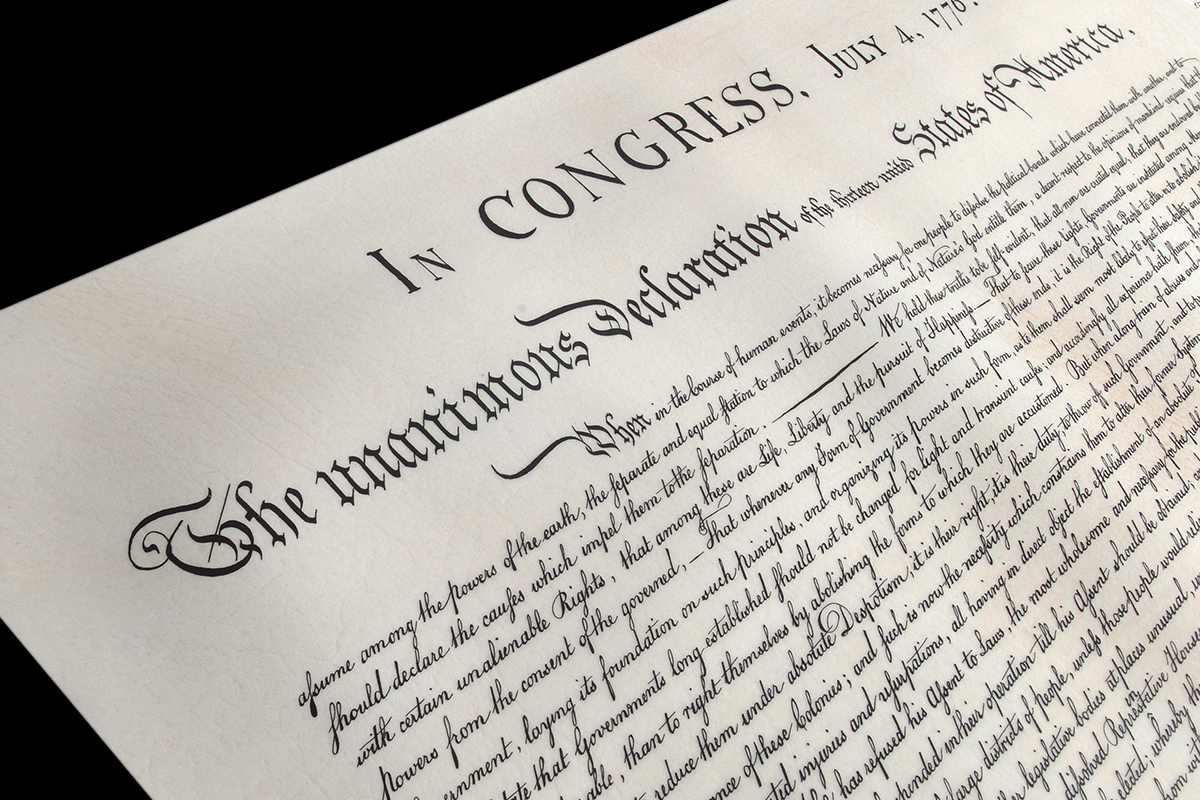 In CONGRESS, July 4, 1776.
The unanimous Declaration of the thirteen united States of America,
When in the Course of human events, it becomes neceſsary for one people to diſsolve the political bands which have connected them with another, and to
aſsume among the powers of the earth, the ſeparate and equal ſtation to which the Laws of Nature and of Nature's God entitle them, a decent reſpect to the opinions of mankind requires that
ſhould declare the cauſes which impel them to the ſeparation. —— We hold these truths to be ſelf-evident, that all men are created equal, that they are endowed by
with certain unalienable Rights, that among these are Life, Liberty and the pursuit of Happineſs.— That to ſecure these rights, Governments are instituted among
powers from the consent of the governed, — That whenever any Form of Government becomes destructive of these ends, it is the Right of the People to alter or to abolish
ernment, laying its foundation on such principles, and organizing its powers in such form, as to them shall seem most likely to effect their Safety and
that Governments long established should not be changed for light and transient cauſes; and accordingly all experience hath shewn,
able, than to right themselves by abolishing the forms to which they are accustomed. But when a long train of abuses and
reduce them under absolute Deſpotism, it is their right, it is their duty, to throw off such Government, and to
ance of these Colonies; and ſuch is now the neceſsity which constrains them to alter their former Systems
ted injuries and uſurpations, all having in direct object the establishment of an absolute
has refuſed his Aſsent to Laws, the most wholesome and neceſsary for the
pended in their operation till his Aſsent should be obtained;
large districts of people, unleſs those people would
legislative bodies at places unusual,
diſsolved Repreſentative
elected; whereby